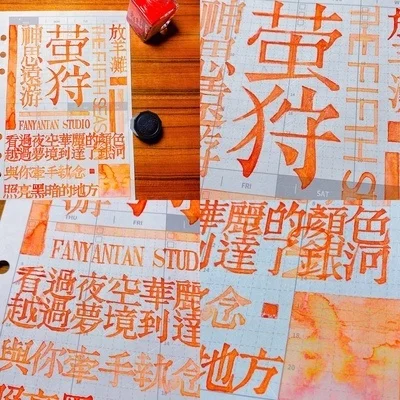 神思遠游
萤狩
放羊灘
FANYANTAN STUDIO
看過夜空華麗的顏色
越過夢境到達了銀河
與你牽手執念
照亮黑暗的地方
神思遠游
萤狩
FRI
SAT
THU
FANYANTAN STUD
看過夜空華麗
越過夢境到達
與你牽手執念
華麗的顏色
到達了銀河
念
地方